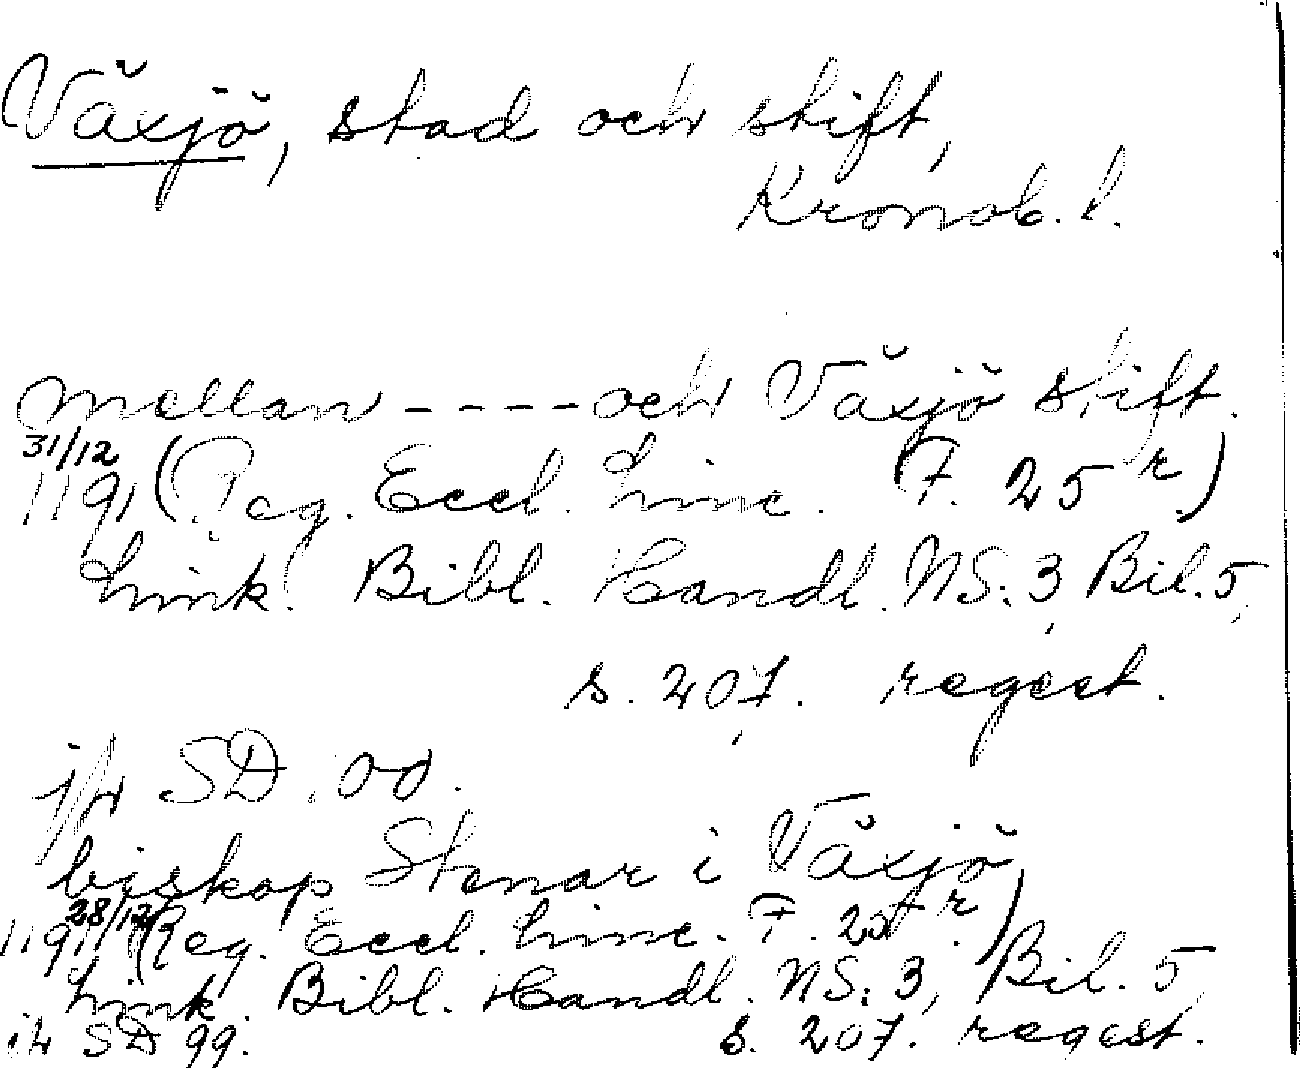 Växjö, stad och stift,
Kronob. l.
mellan ---- och Växjö stift.
31/12
1191 (Reg. Eccl. Linc. (F. 25 r)
Link. Bibl. Handl. NS: 3, Bil. 5,
s. 207. regest.
jfr SD 100.
biskop Stenar i Växjö
28/12
1191 (Reg. Eccl. Linc. F. 25 r)
Link. Bibl. Handl. NS: 3, Bil. 5,
jfr SD 99. s. 207. regest.